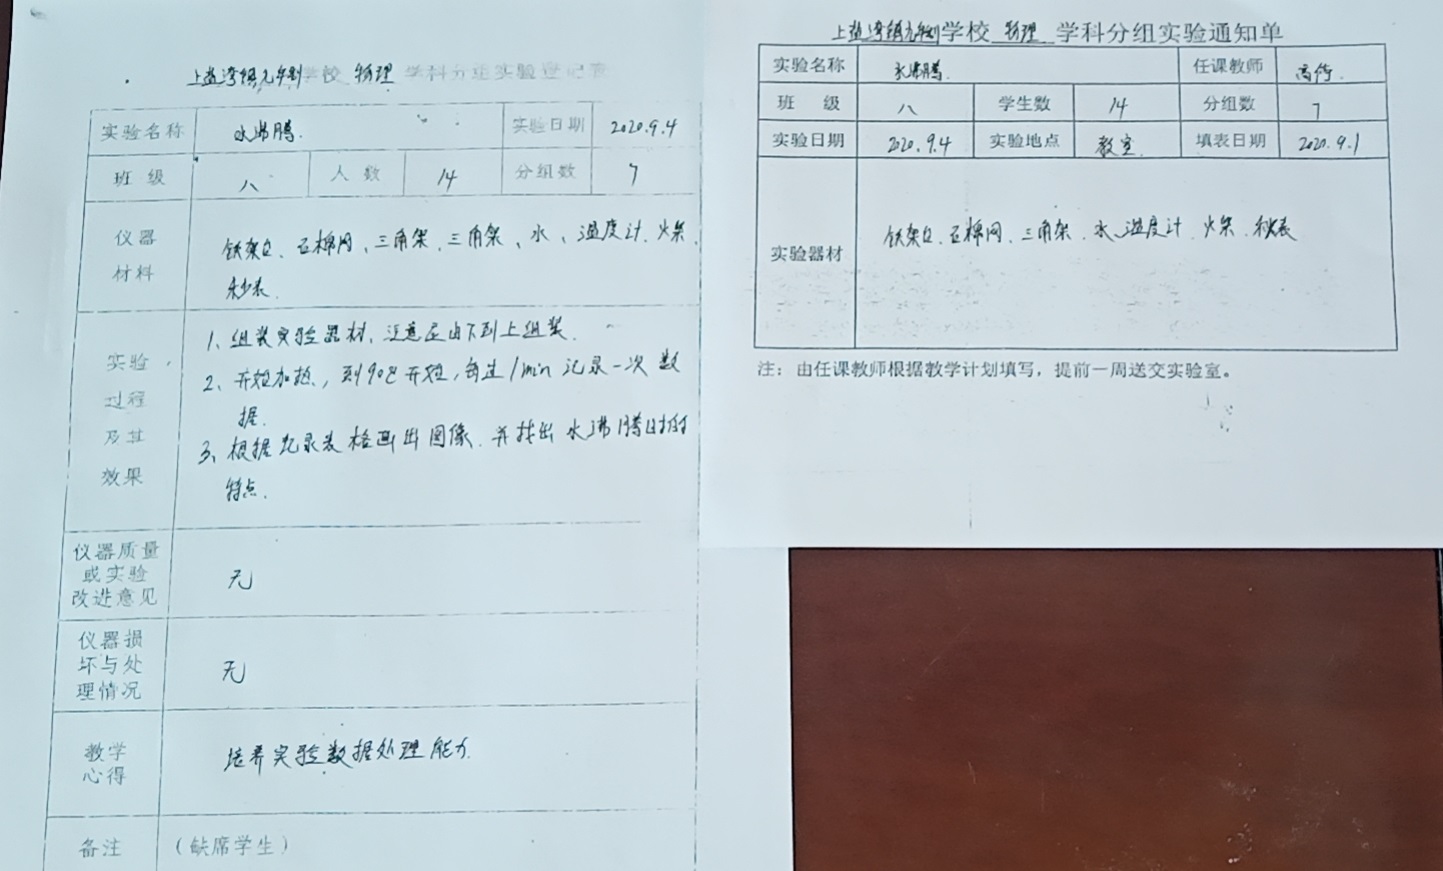 上盐湾镇九年制学校 物理 学科分组实验登记表
实验名称 水沸腾. 实验日期 2020.9.4
班 级 八 人 数 14 分组数 7
仪器材料 铁架台、石棉网、三角架、三角架、水、温度计、火柴、
秒表.
实验过程及其效果
1、组装实验器材,注意是由下到上组装.
2、开始加热,到90℃开始,每过1min记录一次数
据.
3、根据记录表格画出图像.并找出水沸腾时的
特点.
仪器质量或实验改进意见 无
仪器损坏与处理情况 无
教学心得 培养实验数据处理能力.
备注 (缺席学生)
上盐湾镇九年制学校 物理 学科分组实验通知单
实验名称 水沸腾. 任课教师
班 级 八 学生数 14 分组数 7
实验日期 2020.9.4 实验地点 教室 填表日期 2020.9.1
实验器材 铁架台、石棉网、三角架、水、温度计、火柴、秒表
注:由任课教师根据教学计划填写,提前一周送交实验室。